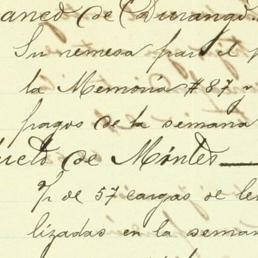 Banco de Durango.
Su remesa para el p
la Memoria #87 y
pagos de la semana
de Móntes
P/ de 57 cargas de le
lizadas en la seman